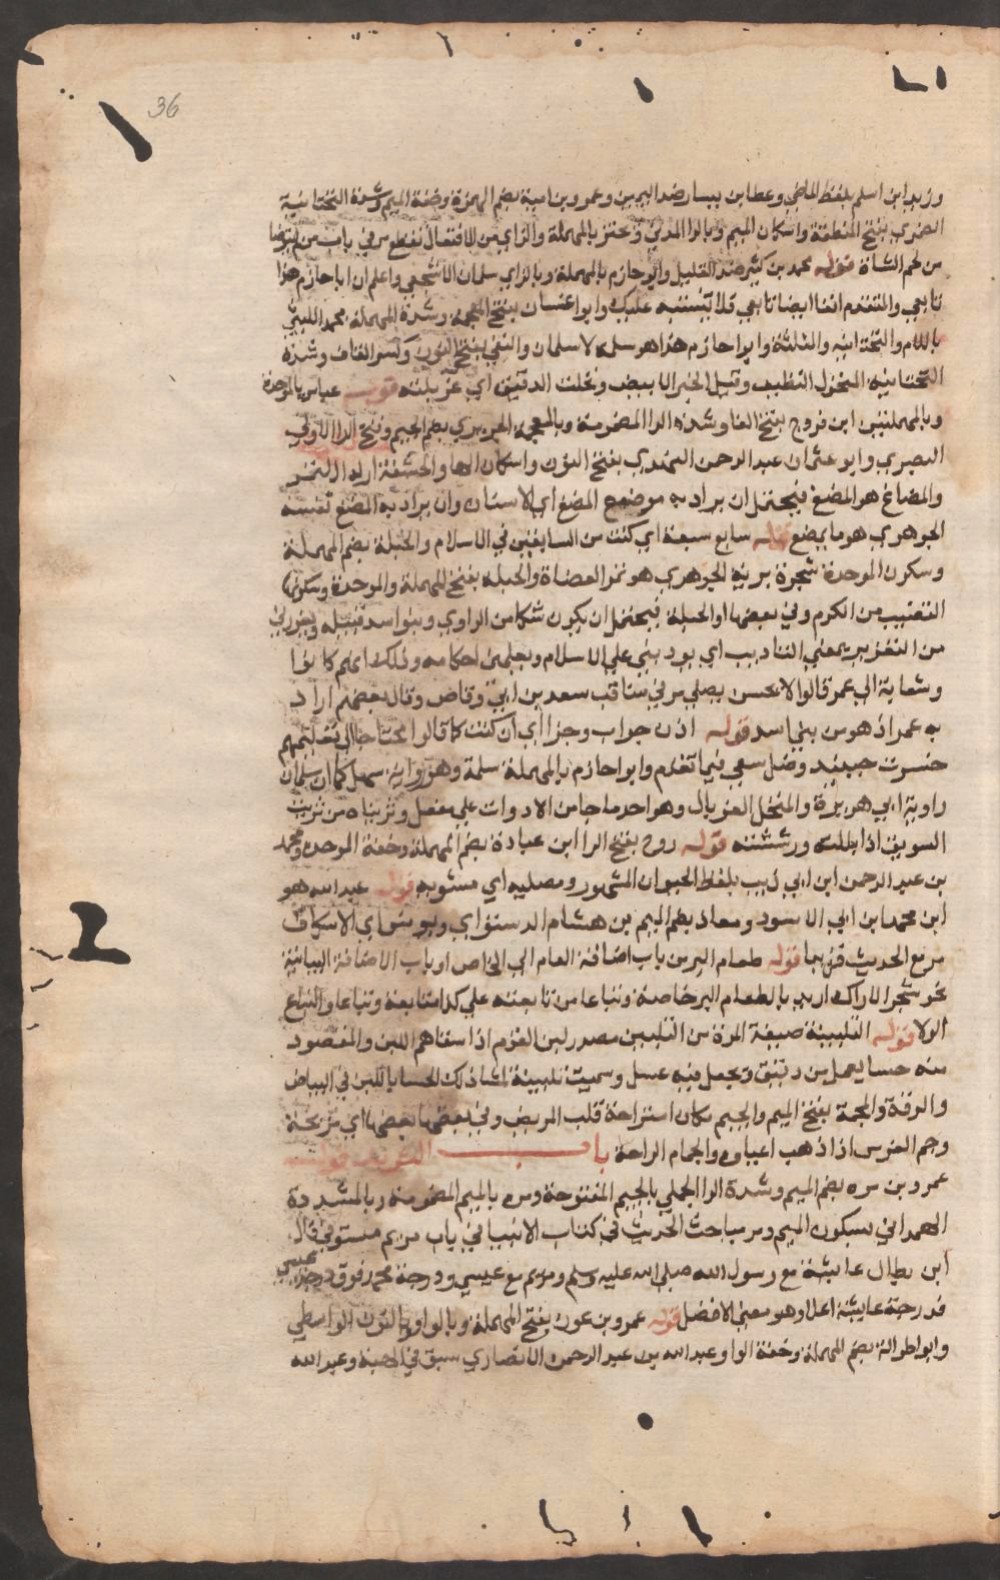 36
وزيد ابن اسلم بلفظ الماضي وعطا بن يسار ضد اليمين وعمرو بن امية بضم الهمزة وخفة الميم وشدة التحتانية
الضمري بفتح المنطقة واسكان الميم وبالرا المدني ويحتز بالمهملة والزاي من الافتعال يقطع مر في باب من لم يتوضا
من لحم الشاة قوله محمد بن كثير ضد القليل وابو حازم بالمهملة وبالزاي سلمان الاشجعي واعلم ان ابا حازم هذا
تابعي والمتقدم انفا ايضا تابعي فلا يشتبه عليك وابو اغسان بفتح المعجمة وشدة المهملة محمد الليثي
بالام والتحتانية والمثلثة وابو حازم هذا هو سلمة لا سلمان والنقي بفتح النون وكسر القاف وشدة
التحتانية المنخول النظيف وقيل الخبز الابيض ونخلت الدقيق اي غربلته قوله عباس بالموحدة
وبالمهملتين ابن فروخ بفتح الفا وشدة الرا المضمومة وبالمعجمة الجريري بضم الجيم وفتح الرا الاولي
البصري وابو عثمان عبد الرحمن النهدي بفتح النون واسكان الها والحشفة اردا التمر
والمضاغ هو المضغ فيحتمل ان يراد به موضع المضغ اي الاسنان وان يراد به المضغ نفسه
الجوهري هو ما يمضغ قوله سابع سبعة اي كنت من السابقين في الاسلام والحبلة بضم المهملة
وسكون الموحدة شجرة برية الجوهري هو ثمر العضاة والحبلة بفتح المهملة والموحدة وسكونها
القضيب من الكرم وفي بعضها او الحبلة فيحتمل ان يكون شكا من الراوي وبنو اسد قبيلة ويعزرني
من التعزير بمعني التاديب اي يود بني علي الاسلام ويعلمني احكامه وذلك انهم كانوا
وشعاية الي عمر قالوا لا يحسن يصلي مر في مناقب سعد بن ابي وقاص وقال بعضهم اراد
به عمر اذ هو من بني اسد قوله اذن جواب وجزا اي ان كنت كما قالوا محتاجا الي تعليمهم
خسرت حينيذ وضل سعي فيما تقدم وابو حازم بالمهملة سلمة وهو رواية سهل كما ان سلمان
راوية ابي هريرة والمنخل الغربال وهو احد ما جا من الادوات علي مفعل وثريناه من ثريت
السويق اذا بللته ورششته قوله روح بفتح الرا ابن عبادة بضم المهملة وخفة الموحدة ومحمد
بن عبد الرحمن ابن ابي ذيب بلفظ الحيوان المشهور ومصلية اي مشوية قوله عبد الله هو
ابن محمد ابن ابي الاسود ومعاذ بضم الميم بن هشام الدستواي ويونس اي الاسكاف
مر مع الحديث قريبا قوله طعام البر من باب اضافة العام الي الخاص او باب الاضافة البيانية
نحو شجر الاراك اريد بالطعام البر خاصة وتباعا من تابعته علي كذا متابعة وتباعا والتباع
الولا قوله التلبينة صيغة المرة من التلبين مصدر لبن القوم اذا سقاهم اللبن والمقصود
منه حسا يعمل من دقيق ويجعل فيه عسل وسميت تلبينة لمشاذلك الحسا باللبن في البياض
والرقة والمجمة بفتح الميم والجيم مكان استراحة قلب المريض وفي بعضها بعضها اي مريحة
وجم الفرس اذا ذهب اعياوه والجمام الراحة باب الثريد قوله
عمرو بن مرة بضم الميم وشدة الرا الجملي بالجيم المفتوحة ومرة بالميم المضمومة وبالمشددة
الهمداني بسكون الميم ومر مباحث الحديث في كتاب الانبيا في باب مريم مستوفي قال
ابن بطال عايشة مع رسول الله صلي الله عليه وسلم ومريم مع عيسي ودرجة محمد فوق درجة عيسي
فدرجة عايشة اعلا وهو معني الافضل قوله عمرو بن عون بفتح المهملة وبالواو وبالنون الواسطي
وابو اطوالة بضم المهملة وخفة الواو عبد الله بن عبد الرحمن الانصاري سبق في الهبة وعبد الله